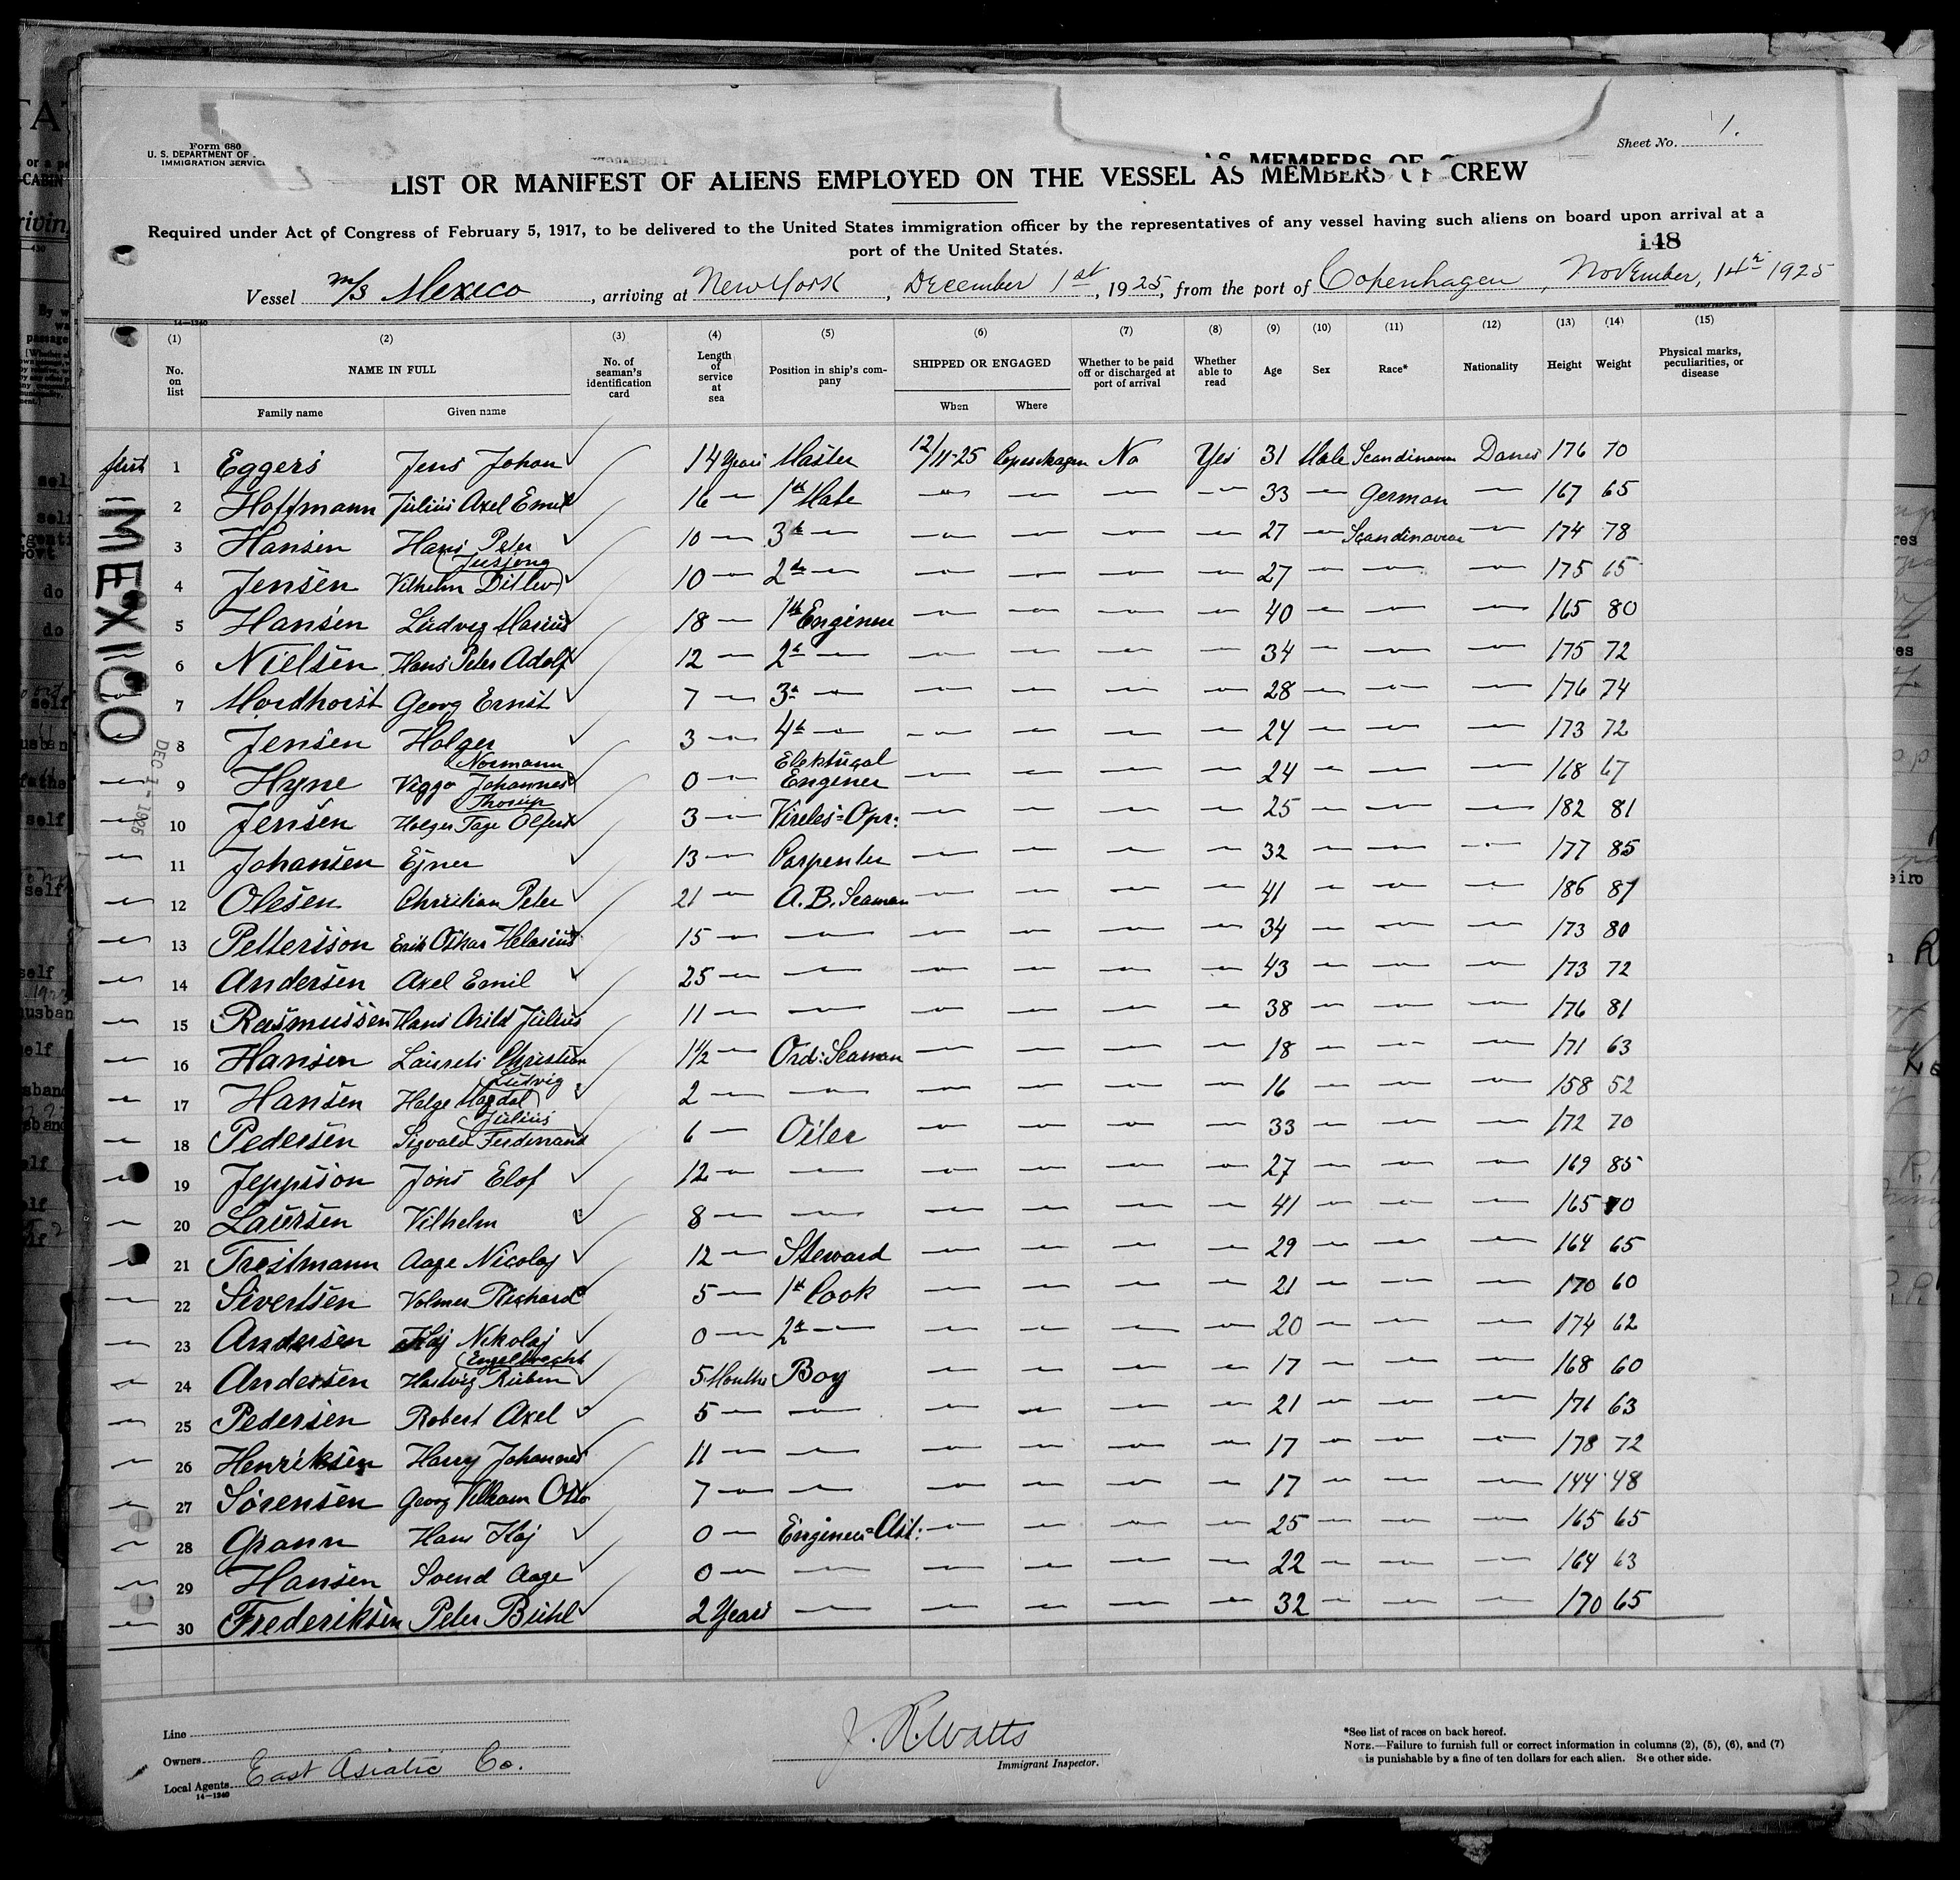 Form 680
U. S. DEPARTMENT OF
IMMIGRATION SERVICE
Sheet No. 1.
LIST OR MANIFEST OF ALIENS EMPLOYED ON THE VESSEL AS MEMBERS OF CREW
Required under Act of Congress of February 5, 1917, to be delivered to the United States immigration officer by the representatives of any vessel having such aliens on board upon arrival at a
port of the United States.
148
Vessel M/S Mexico, arriving at New York, December 1st, 1925, from the port of Copenhagen, November, 14th 1925
14—1240
(1) (2) (3) (4) (5) (6) (7) (8) (9) (10) (11) (12) (13) (14) (15)
No. on list NAME IN FULL No. of seaman's identification card Length of service at sea Position in ship's company SHIPPED OR ENGAGED Whether to be paid off or discharged at port of arrival Whether able to read Age Sex Race* Nationality Height Weight Physical marks, peculiarities, or disease
Family name Given name When Where
first 1 Eggers Jens Johan 14 Years Master 12/11-25 Copenhagen No Yes 31 Male Scandinavian Danes 176 70
2 Hoffmann Julius Axel Emil 16 — 1st Mate — — — — 33 — German — 167 65
3 Hansen Hans Peter 10 — 3d — — — — — 27 — Scandinavian — 174 78
4 Jensen Vilhelm Ditlev 10 — 2d — — — — — 27 — — — 175 65
5 Hansen Ludvig Marius 18 — 1st Engineer — — — — 40 — — — 165 80
6 Nielsen Hans Peter Adolf 12 — 2d — — — — — 34 — — — 175 72
7 Mordhorst Georg Ernst 7 — 3d — — — — — 28 — — — 176 74
8 Jensen Holger 3 — 4th — — — — — 24 — — — 173 72
— 9 Hyne Viggo Johannes (Normann 0 — Elektrigal Enginer — — — — 24 — — — 168 67
— 10 Jensen Holger Tage Olfert (Thorup 3 — Vireles=Opr: — — — — 25 — — — 182 81
— 11 Johansen Ejner 13 — Carpenter — — — — 32 — — — 177 85
— 12 Olesen Christian Peter 21 — A. B. Seaman — — — — 41 — — — 186 87
— 13 Pettersson Erik Oskar 15 — — — — — — 34 — — — 173 80
— 14 Andersen Axel Emil 25 — — — — — — 43 — — — 173 72
— 15 Rasmussen Hans Arild Julius 11 — — — — — — 38 — — — 176 81
— 16 Hansen Laurets Christian 1½ — Ord: Seaman — — — — 18 — — — 171 63
— 17 Hansen Helge Magdal (Ludvig) 2 — — — — — — 16 — — — 158 52
— 18 Pedersen Sigvald Ferdinand (Julius 6 — Oiler — — — — 33 — — — 172 70
— 19 Jeppsson Jöns Elof 12 — — — — — — 27 — — — 169 85
— 20 Laursen Vilhelm 8 — — — — — — 41 — — — 165 70
— 21 Trostmann Aage Nicolaj 12 — Steward — — — — 29 — — — 164 65
— 22 Sivertsen Volmer Richard 5 — 1st Cook — — — — 21 — — — 170 60
— 23 Andersen Kaj Nikolaj 0 — 2d — — — — — 20 — — — 174 62
— 24 Andersen Hartvig Ruben (Engelbrecht 5 Months Boy — — — — 17 — — — 168 60
— 25 Pedersen Robert Axel 5 — — — — — — 21 — — — 171 63
— 26 Henriksen Harry Johannes 11 — — — — — — 17 — — — 178 72
— 27 Sørensen Georg Villiam Otto 7 — — — — — — 17 — — — 144 48
— 28 Grann Hans Kaj 0 — Engineer=Asit: — — — — 25 — — — 165 65
— 29 Hansen Svend Aage 0 — — — — — — 22 — — — 164 63
— 30 Frederiksen Peter Buhl 2 Years — — — — — 32 — — — 170 65
MEXICO
DEC 1 - 1925
Line
Owners
Local Agents East Asiatic Co.
14—1240
J. R. Watts
Immigrant Inspector.
*See list of races on back hereof.
NOTE.—Failure to furnish full or correct information in columns (2), (5), (6), and (7)
is punishable by a fine of ten dollars for each alien. See other side.